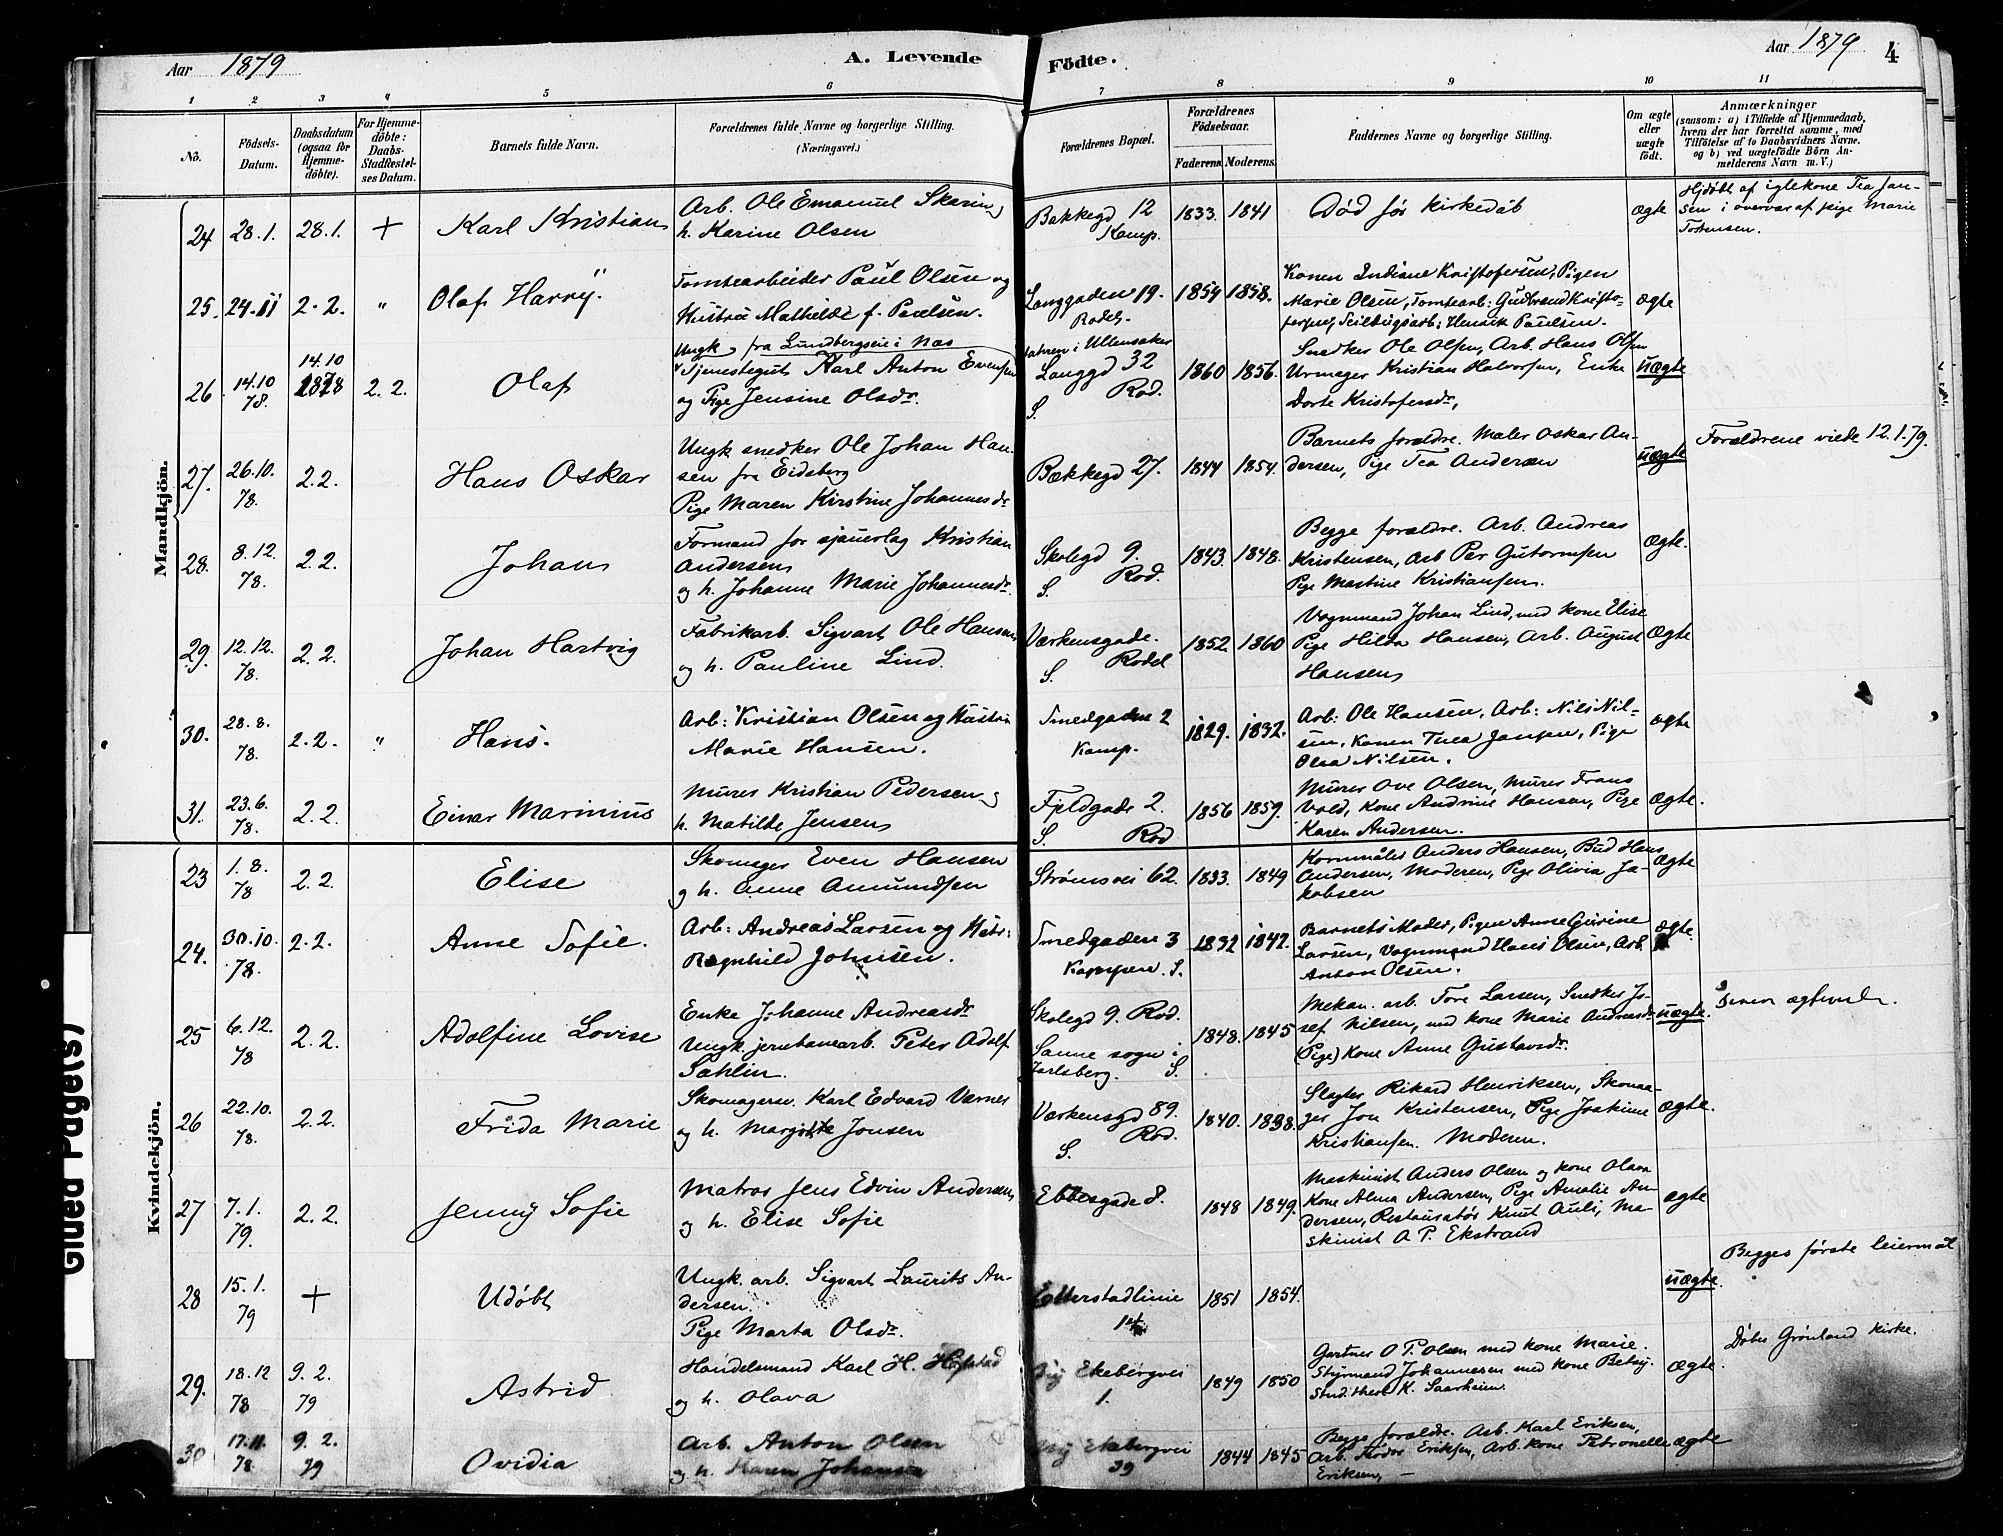 Aar 1879
A. Levende Födte.
Aar 1879 4
1 2 3 4 5 6 7 8 9 10 11
No.
Födsels-
Datum.
Daabsdatum
(ogsaa for
Hjemme-
döbte).
For Hjemme-
döbte:
Daabs-
Stadfæstel-
ses Datum.
Barnets fulde Navn.
Forældrenes fulde Navne og borgerlige Stilling.
(Næringsvei.)
Forældrenes Bopæl.
Forældrenes
Födselsaar.
Faderens. Moderens.
Faddernes Navne og borgerlige Stilling.
Om ægte
eller
uægte
födt.
Anmærkninger
(saasom: a) i Tilfælde af Hjemmedaab,
hvem der har forrettet samme, med
Tilföielse af to Daabsvidners Navne.
og b) ved uægtefödte Börn An-
melderens Navn m. V.)
Mandkjön.
24 28.1. 28.1. + Karl Kristian
Arb. Ole Emanuel Skarin
h. Karine Olsen
Bakkegd 12
Kamp.
1833. 1841
Død før kirkedåb
ægte
Hjdøbt af iglekone Tea Jan-
sen i overvær af pige Marie
Tostensen.
25. 24.11 2.2. " Olaf Harry.
Tomtearbeider Paul Olsen og
Hustru Mathilde f. Paulsen.
Langgaden 19.
Rodel.
1854 1858.
Konen Indiane Kristofersen, Pigen
Marie Olsen, Tomtearb: Gudbrand Kristo-
fersen, Seildugsarb: Henrik Paulsen.
ægte
26 14.10
78.
14.10
1878 2.2. Olaf
Ungk fra Lundbergseie i Næs
Tjenestegut Karl Anton Evensen
og Pige Jensine Olsdr.
faderen i Ullensaker
Langgd 32
S. Rod.
1860 1856.
Snedker Ole Olsen, Arb. Hans Olsen
Urmager Kristian Halvorsen, Enke
Dorte Kristofersdr,
uægte
27. 26.10.
78.
2.2. Hans Oskar
Ungk snedker Ole Johan Han-
sen fra Eidsberg
Pige Maren Kirstine Johannesdr
Bækkegd 27.
1844 1854.
Barnets forældre. Maler Oskar An-
dersen, Pige Tea Andersen
uægte
Forældrene viede 12.1.79.
28. 8.12.
78.
2.2. Johan
Formand for sjauerlag Kristian
Andersen
og h. Johanne Marie Johannesdr.
Skolegd 9.
S. Rod.
1843. 1848.
Begge forældre. Arb. Andreas
Kristensen, Arb Per Gutormsen
Pige Mastine Kristiansen.
Ægte.
29. 12.12.
78.
2.2. Johan Hartvig
Fabrikarb. Sigvart Ole Hansen
og h. Pauline Lind.
Værkensgade.
S. Rodel
1852 1860
Vognmand Johan Lind, med kone Elise
Pige Hilda Hansen, Arb. August
Hansen
Ægte
30. 28.8.
78.
2.2. " Hans.
Arb: Kristian Olsen og Hustru
Marie Hansen.
Smedgaden 2
Kamp.
1829. 1832.
Arb: Ole Hansen, Arb: Nils Nil-
sen, Konen Thea Jansen, Pige
Olea Nilsen.
ægte
31. 23.6.
78.
2.2. Einar Marinius
Murer Kristian Pedersen og
h. Matilde Jensen
Fjeldgade 2.
S. Rod
1856 1859.
Murer Ove Olsen, Murer Frans
Vold, Kone Andrine Hansen, Pige
Karen Andersen.
Ægte.
Kvindekjön.
23 1.8.
78
2.2. Elise
Skomager Even Hansen
og h. Anne Amundsen
Strømsvei 62.
1833. 1849
Kornmåler Anders Hansen, Bud Hans
Andersen, Moderen, Pige Olivia Ja-
kobsen
Ægte
24. 30.10.
78.
2.2. Anne Sofie.
Arb: Andreas Larsen og Hustr:
Ragnhild Johnsen.
Smedgaden 3
Kampen. S.
1832 1842.
Barnets Moder, Pigen Anne Gurine
Larsen, Vognmand Hans Olsen, Arb.
Anton Olsen.
ægte.
25 6.12.
78
2.2. Adolfine Lovise
Enke Johanne Andreasdr
Ungk jernbanearb. Peter Adolf
Sahlin.
Skolegd 9. Rod.
Sanne sogn i
Jarlsberg. S.
1848. 1845
Mekan. arb. Tore Larsen, Snedker Jo-
sef Nilsen, med kone Marie Andreasdr
(Pige) Kone Anne Gustavsdr.
uægte.
26 22.10.
78.
2.2. Frida Marie
Skomagersv. Karl Edvard Værnes
og h. Margitte Jonsen
Værkensgd 89.
S. Rod.
1840. 1838.
Slagter Rikard Henriksen, Skomaa-
ger Jon Kristensen, Pige Joakime
Kristiansen. Moderen.
Ægte.
27 7.1.
79.
2.2. Jenny Sofie
Matros Jens Edvin Andersen,
og h. Elise Sofie
Ebbesgade 8.
1848 1849.
Maskinist Anders Olsen og kone Olava
Kone Alma Andersen, Pige Amalie An-
dersen, Restauratør Knut Auli, Ma-
skinist O. P. Ekstrand
ægte
28 15.1.
79
+ Udøbt
Ungk. arb. Sigvart Laurits An-
dersen.
Pige Marta Olsdr.
Etterstadlinie
1851 1854.
uægte.
Begges første leiermål
29. 18.12
78
9.2.
79
Astrid
Handelsmand Karl H. Hofstad
og h. Olava
Ekebergvei
1.
1849 1850
Gartner O P. Olsen med kone Marie.
Styrmand Johannesen med kone Betsy.
Stud. theol K. Saarheim.
ægte.
Døbes Grønland kirke.
30 17.11.
78
9.2.
79
Ovidia
Arb. Anton Olsen
og h. Karen Johansen
Ekebergvei
39
1844 1845
Begge forældre. Arb. Karl Eriksen,
Arb. Eriksen, Arb. kone Petronelle
Eriksen,
ægte
Glued Page(s)